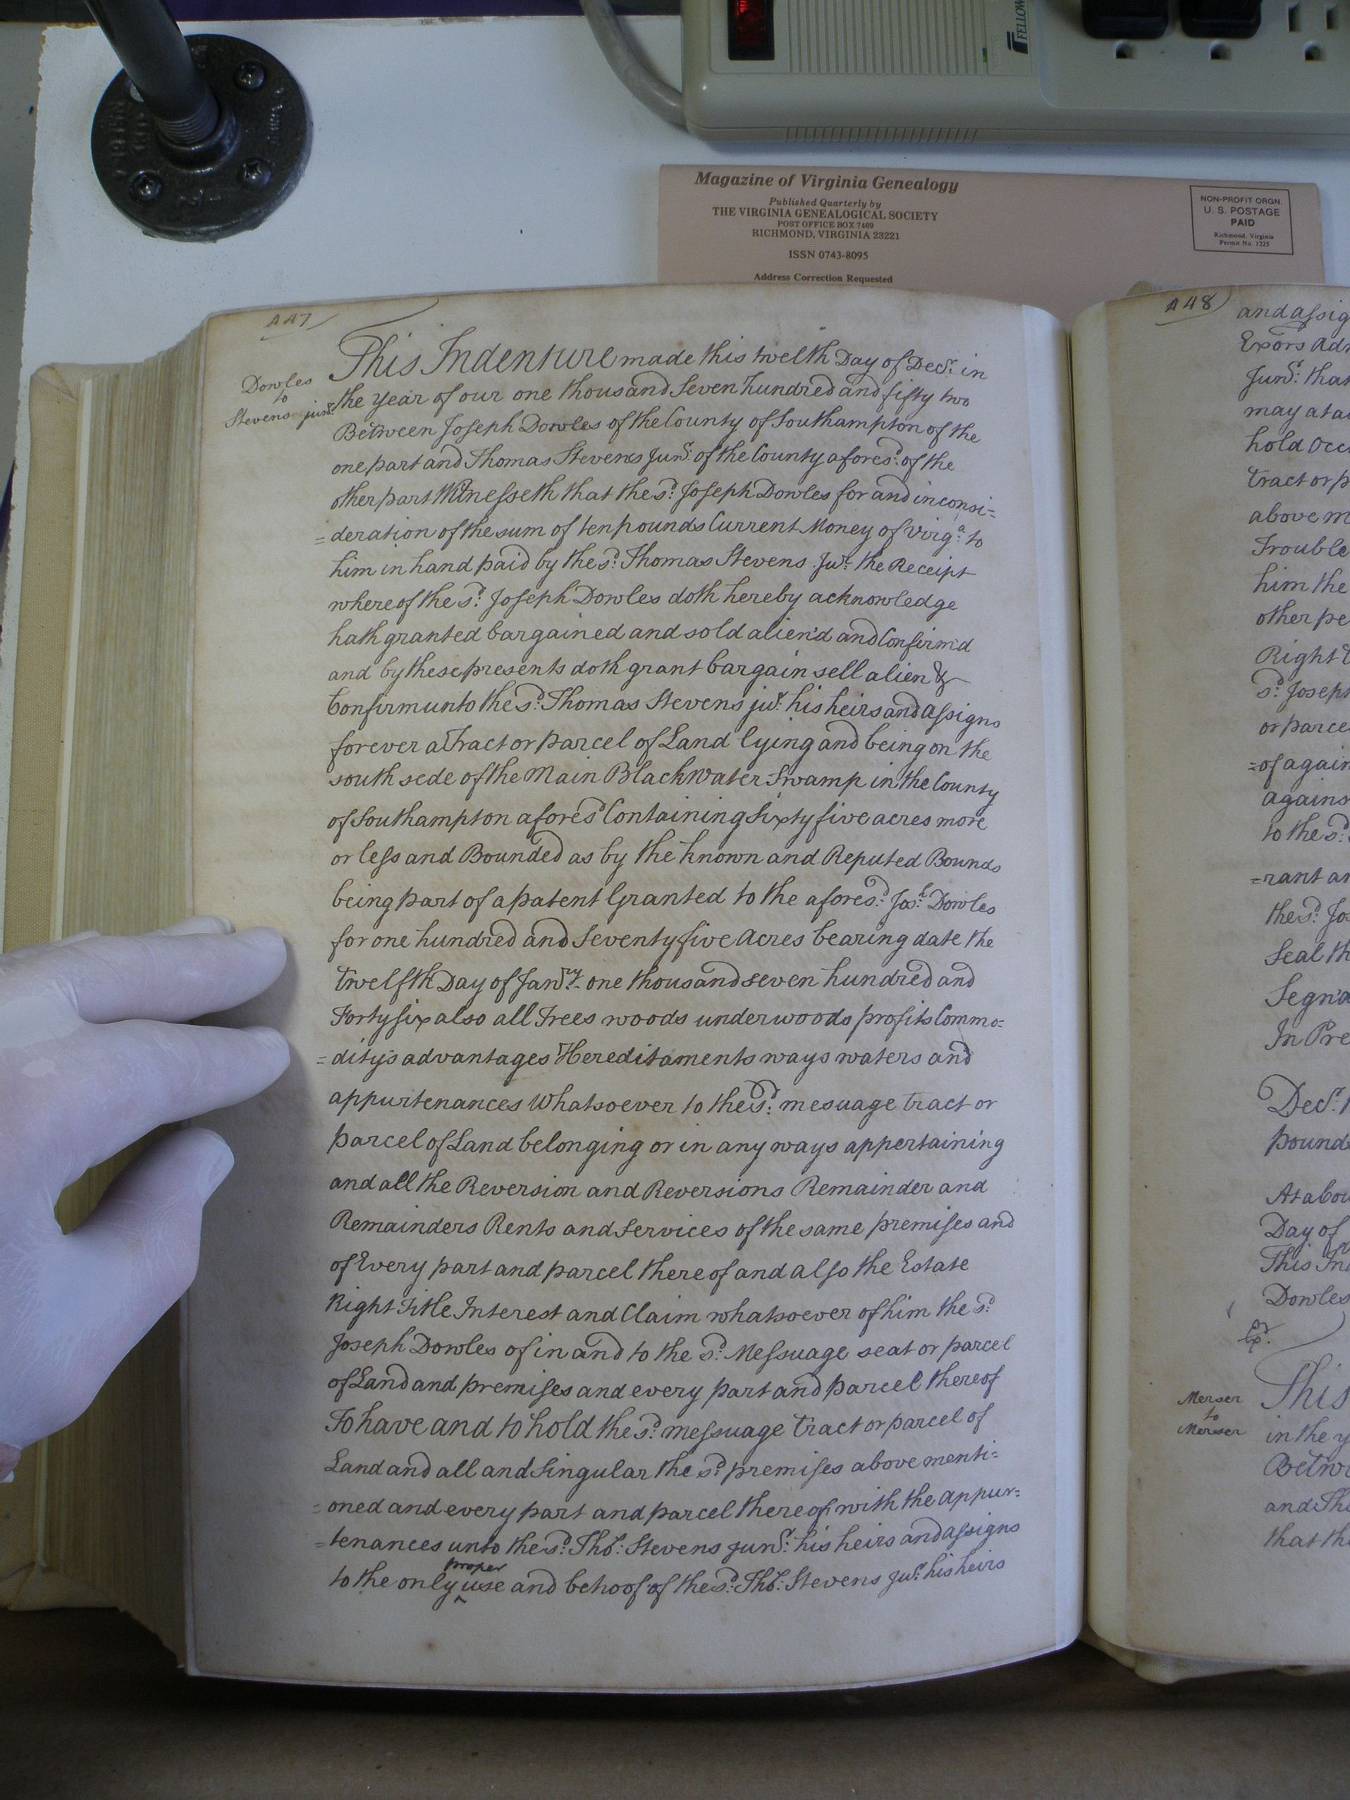 FELLOW
Magazine of Virginia Genealogy
Published Quarterly by
THE VIRGINIA GENEALOGICAL SOCIETY
POST OFFICE BOX 7469
RICHMOND, VIRGINIA 23221
ISSN 0743-8095
Address Correction Requested
NON-PROFIT ORGN.
U. S. POSTAGE
PAID
Richmond, Virginia
Permit No. 1225
447
Dowles
to
Stevens junr.
This Indenture made this twelth Day of Decr. in
the year of our one thousand Seven hundred and fifty two
Between Joseph Dowles of the County of Southampton of the
one part and Thomas Stevens Junr. of the County aforesd. of the
other part Witnesseth that the sd. Joseph Dowles for and in consi=
=deration of the sum of ten pounds Current Money of Virga. to
him in hand paid by the sd. Thomas Stevens Jur. the Receipt
whereof the sd. Joseph Dowles doth hereby acknowledge
hath granted bargained and sold alien'd and Confirm'd
and by these presents doth grant bargain sell alien &
Confirm unto the sd. Thomas Stevens jur. his heirs and assigns
forever a Tract or parcel of Land lying and being on the
south sede of the Main Blackwater Swamp in the County
of Southampton aforesd Containing Sixty five acres more
or less and Bounded as by the known and Reputed Bounds
being part of a patent Granted to the aforesd. Josh. Dowles
for one hundred and Seventy five Acres bearing date the
Twelfth Day of Janry. one thousand seven hundred and
Forty six also all Trees woods underwoods profits Commo=
=dity's advantages Hereditaments ways waters and
appurtenances Whatsoever to the sd. mesuage tract or
parcel of Land belonging or in any ways appertaining
and all the Reversion and Reversions Remainder and
Remainders Rents and Services of the same premises and
of Every part and parcel there of and also the Estate
Right Title Interest and Claim whatsoever of him the sd.
Joseph Dowles of in and to the sd. Messuage seat or parcel
of Land and premises and every part and parcel thereof
To have and to hold the sd. messuage tract or parcel of
Land and all and Singular the sd. premises above menti=
=oned and every part and parcel there of with the appur=
=tenances unto the sd. Tho. Stevens junr. his heirs and assigns
proper
to the only ^ use and behoof of the sd. Tho. Stevens jur. his heirs
448
and assig
Exors Adm
Junr. that
may at a
hold Occ
tract or p
above m
Trouble
him the
other pe
Right
sd. Joseph
or parce
=of again
agains
to the sd.
=rant an
the sd. Jo
Seal th
Segn'd
In Pre
Decr. 1
pound
At a Cou
Day of
This In
Dowles
Merser
to
Merser
This
in the y
Betwe
and Th
that the